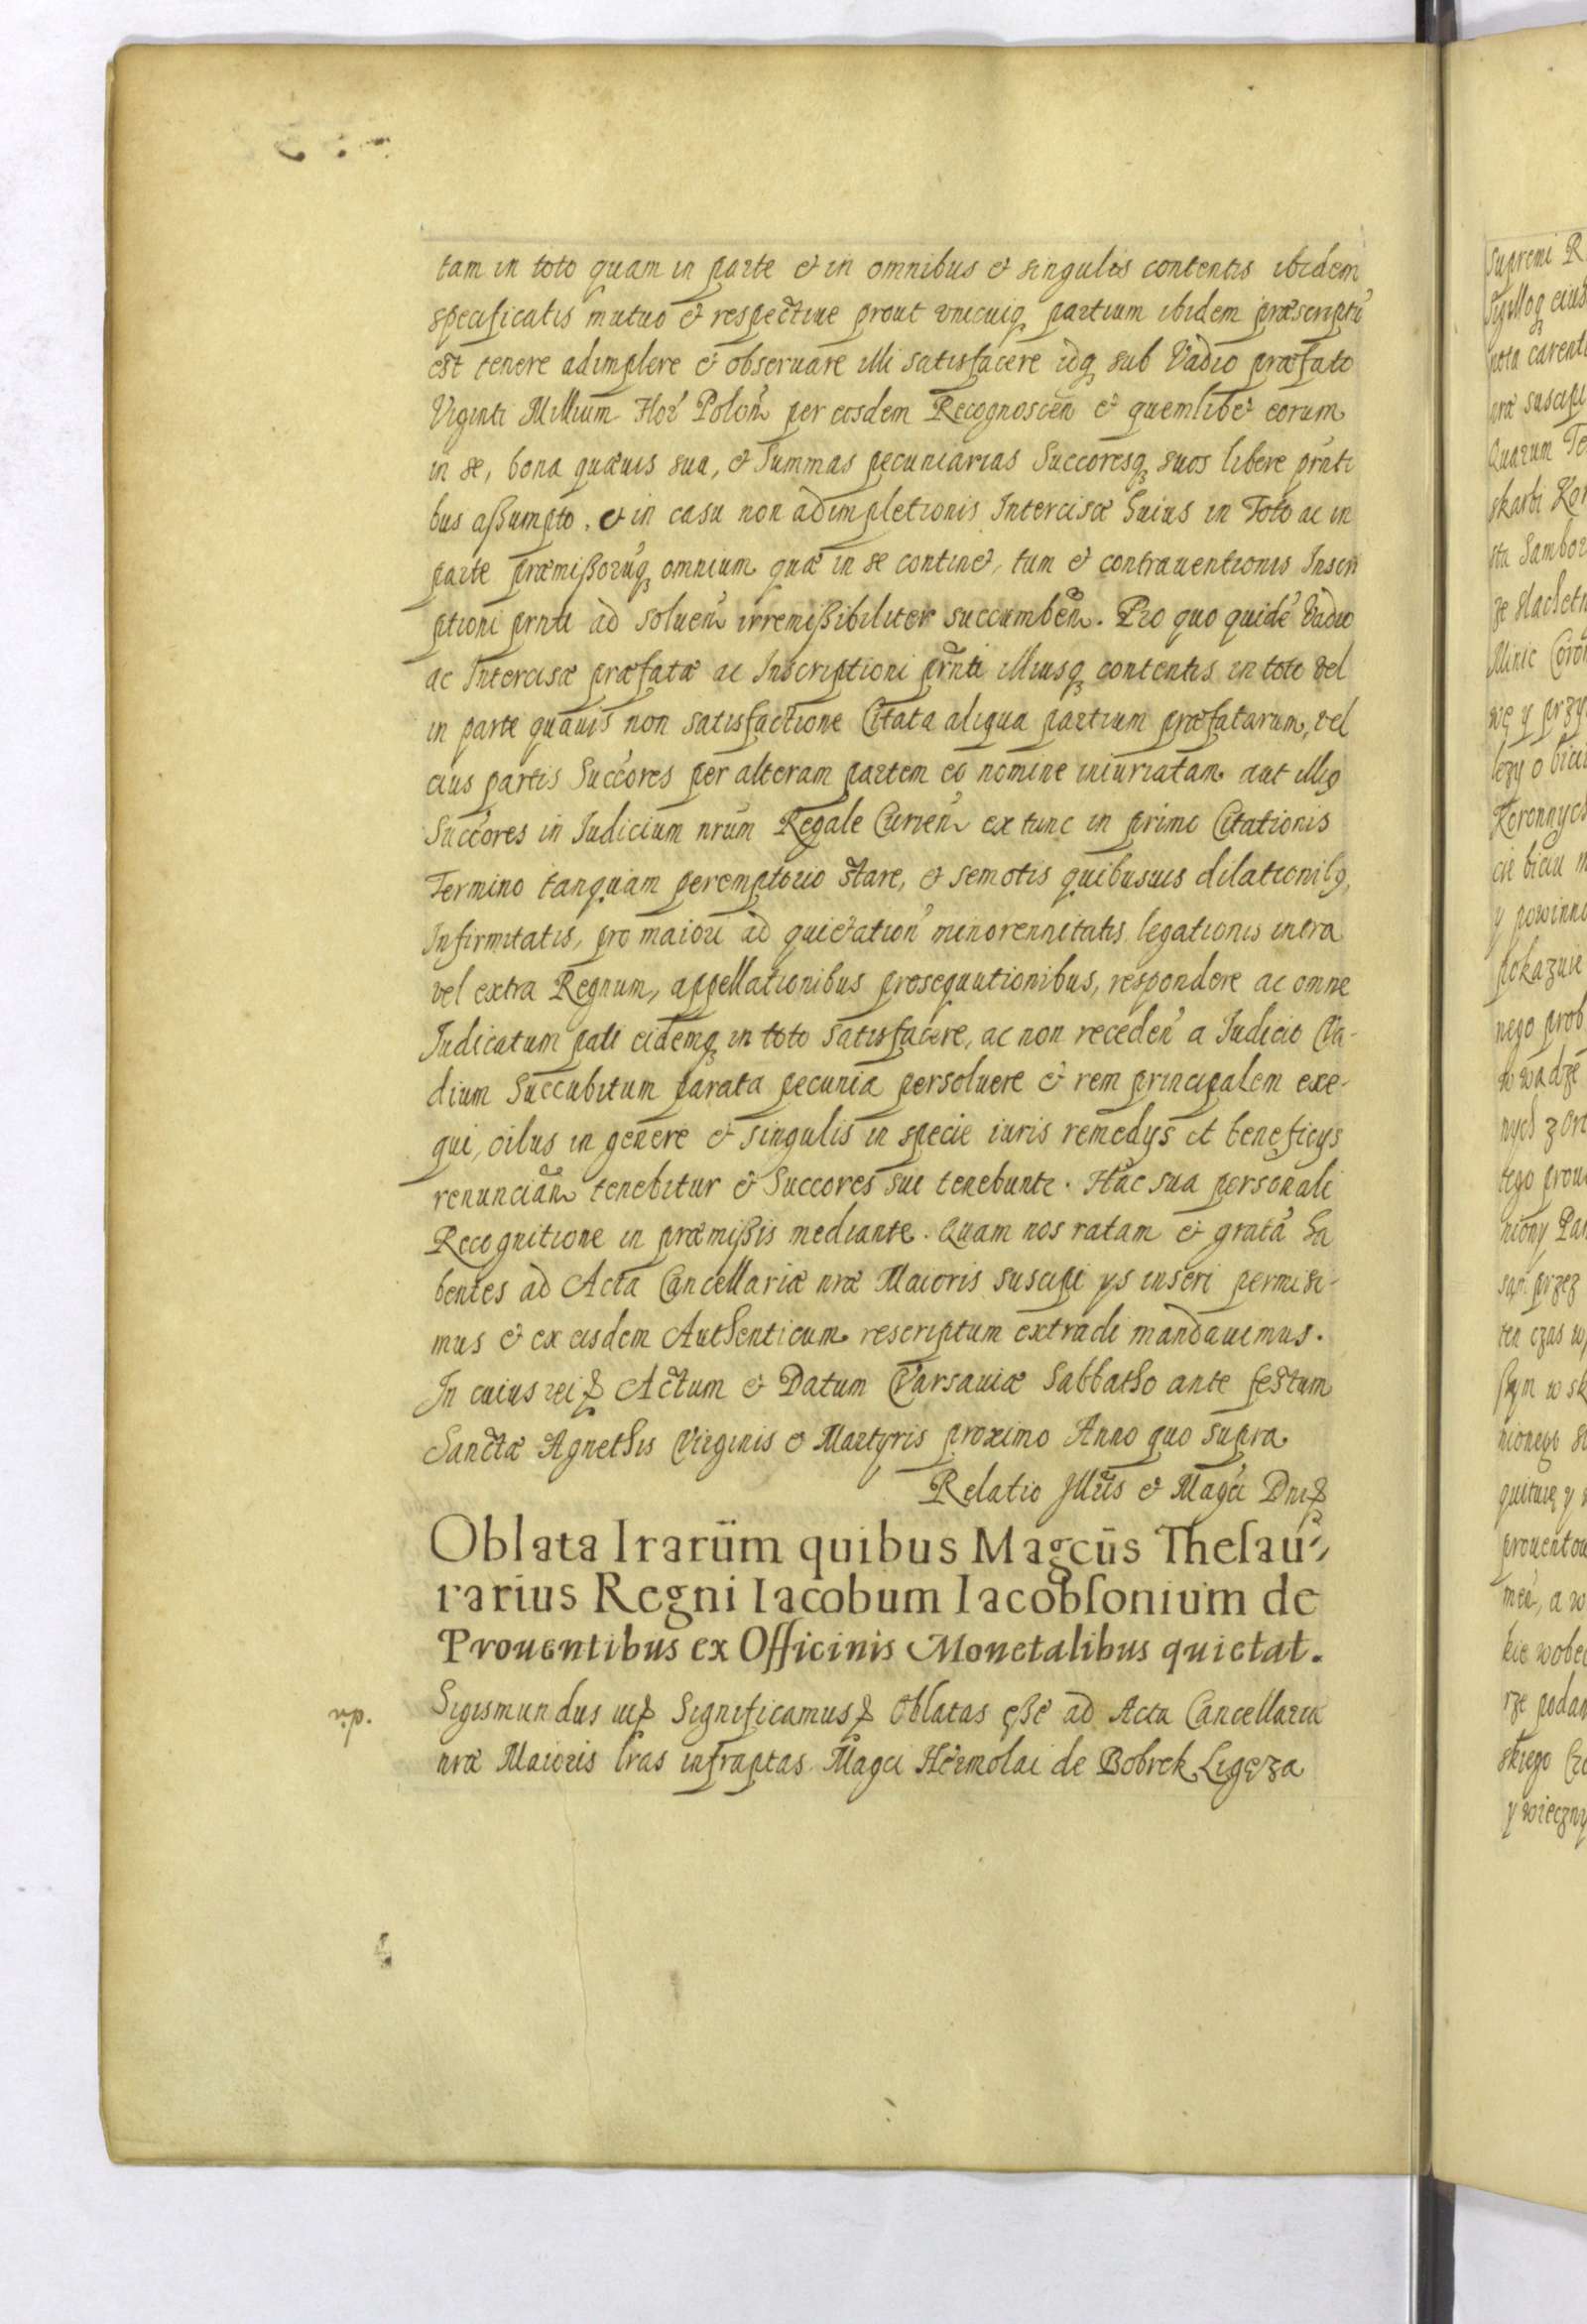 tam in toto quam in parte et in omnibus et singulis contentis ibidem
specificatis mutuo et respectiue prout vnicuiq₃ partium ibidem præscriptū
est tenere adimplere et obseruare illi satisfacere idq₃ sub Vadio præfato
Viginti Millium Flor̃ Polon̄ per eosdem Recognoscen̄ et quemlibet eorum
in se, bona quæuis sua, et Summas pecuniarias Succoresq₃ suos libere prñti
bus aßumpto, et in casu non adimpletionis Intercisæ huius in Toto ac in
parte præmißorūq₃ omnium quæ in se continet, tum et contrauentionis Inscri
ptioni prñti ad soluen̄ irremißibiliter succumben̄. Pro quo quidē Vadio
ac Intercisæ præfatæ ac Inscriptioni prñti illiusq₃ contentis in toto vel
in parte quauis non satisfactione Citata aliqua partium præfatarum, vel
eius partis Succores per alteram partem eo nomine iniuriatam aut illiꝯ
Succores in Iudicium nrūm Regale Curien̄ ex tunc in primo Citationis
Termino tanquam peremptorio stare, et semotis quibusuis dilationibꝯ,
Infirmitatis, pro maiori ad quietation̄ minorennitatis legationis intra
vel extra Regnum, appellationibus prosequutionibus, respondere ac omne
Iudicatum pati eidemq₃ in toto satisfacere, ac non receden̄ a Iudicio Va-
dium Succubitum parata pecunia persoluere et rem principalem exe-
qui, oibus in genere et singulis in specie iuris remedys et beneficys
renuncian̄ tenebitur et Succores sui tenebuntr. Hac sua personali
Recognitione in præmißis mediante. Quam nos ratam et gratā ha
bentes ad Acta Cancellariæ nræ Maioris suscipi ys inseri permisi-
mus et ex eisdem Authenticum rescriptum extradi mandauimus.
In cuius rei ꝛc Actum et Datum Varsauiæ Sabbatho ante festum
Sanctæ Agnethis Virginis et Martyris proximo Anno quo supra
Relatio Illris et Magci Dni ꝛc
Oblata lrarūm quibus Magcūs Thesau-
rarius Regni Iacobum Iacobsonium de
Prouentibus ex Officinis Monetalibus quietat.
Sigismundus iii ꝛc Significamus ꝛc Oblatas eße ad Acta Cancellariæ
nræ Maioris lras infraptas Magci Hermolai de Bobrek Ligęza